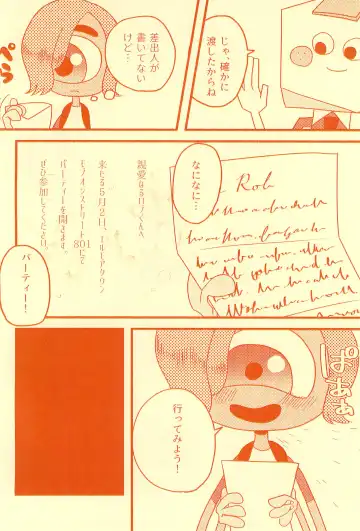 じゃ、確かに
渡したからね
差出人が
書いてない
けど…
ぺら
なになに…
Rob
親愛なるロブくんへ
来たる5月2日、エルモアタウン
モアオンストリート801にて
パーティーを開きます。
ぜひ参加してください。
パーティー！
ぱぁぁ
行ってみよう！